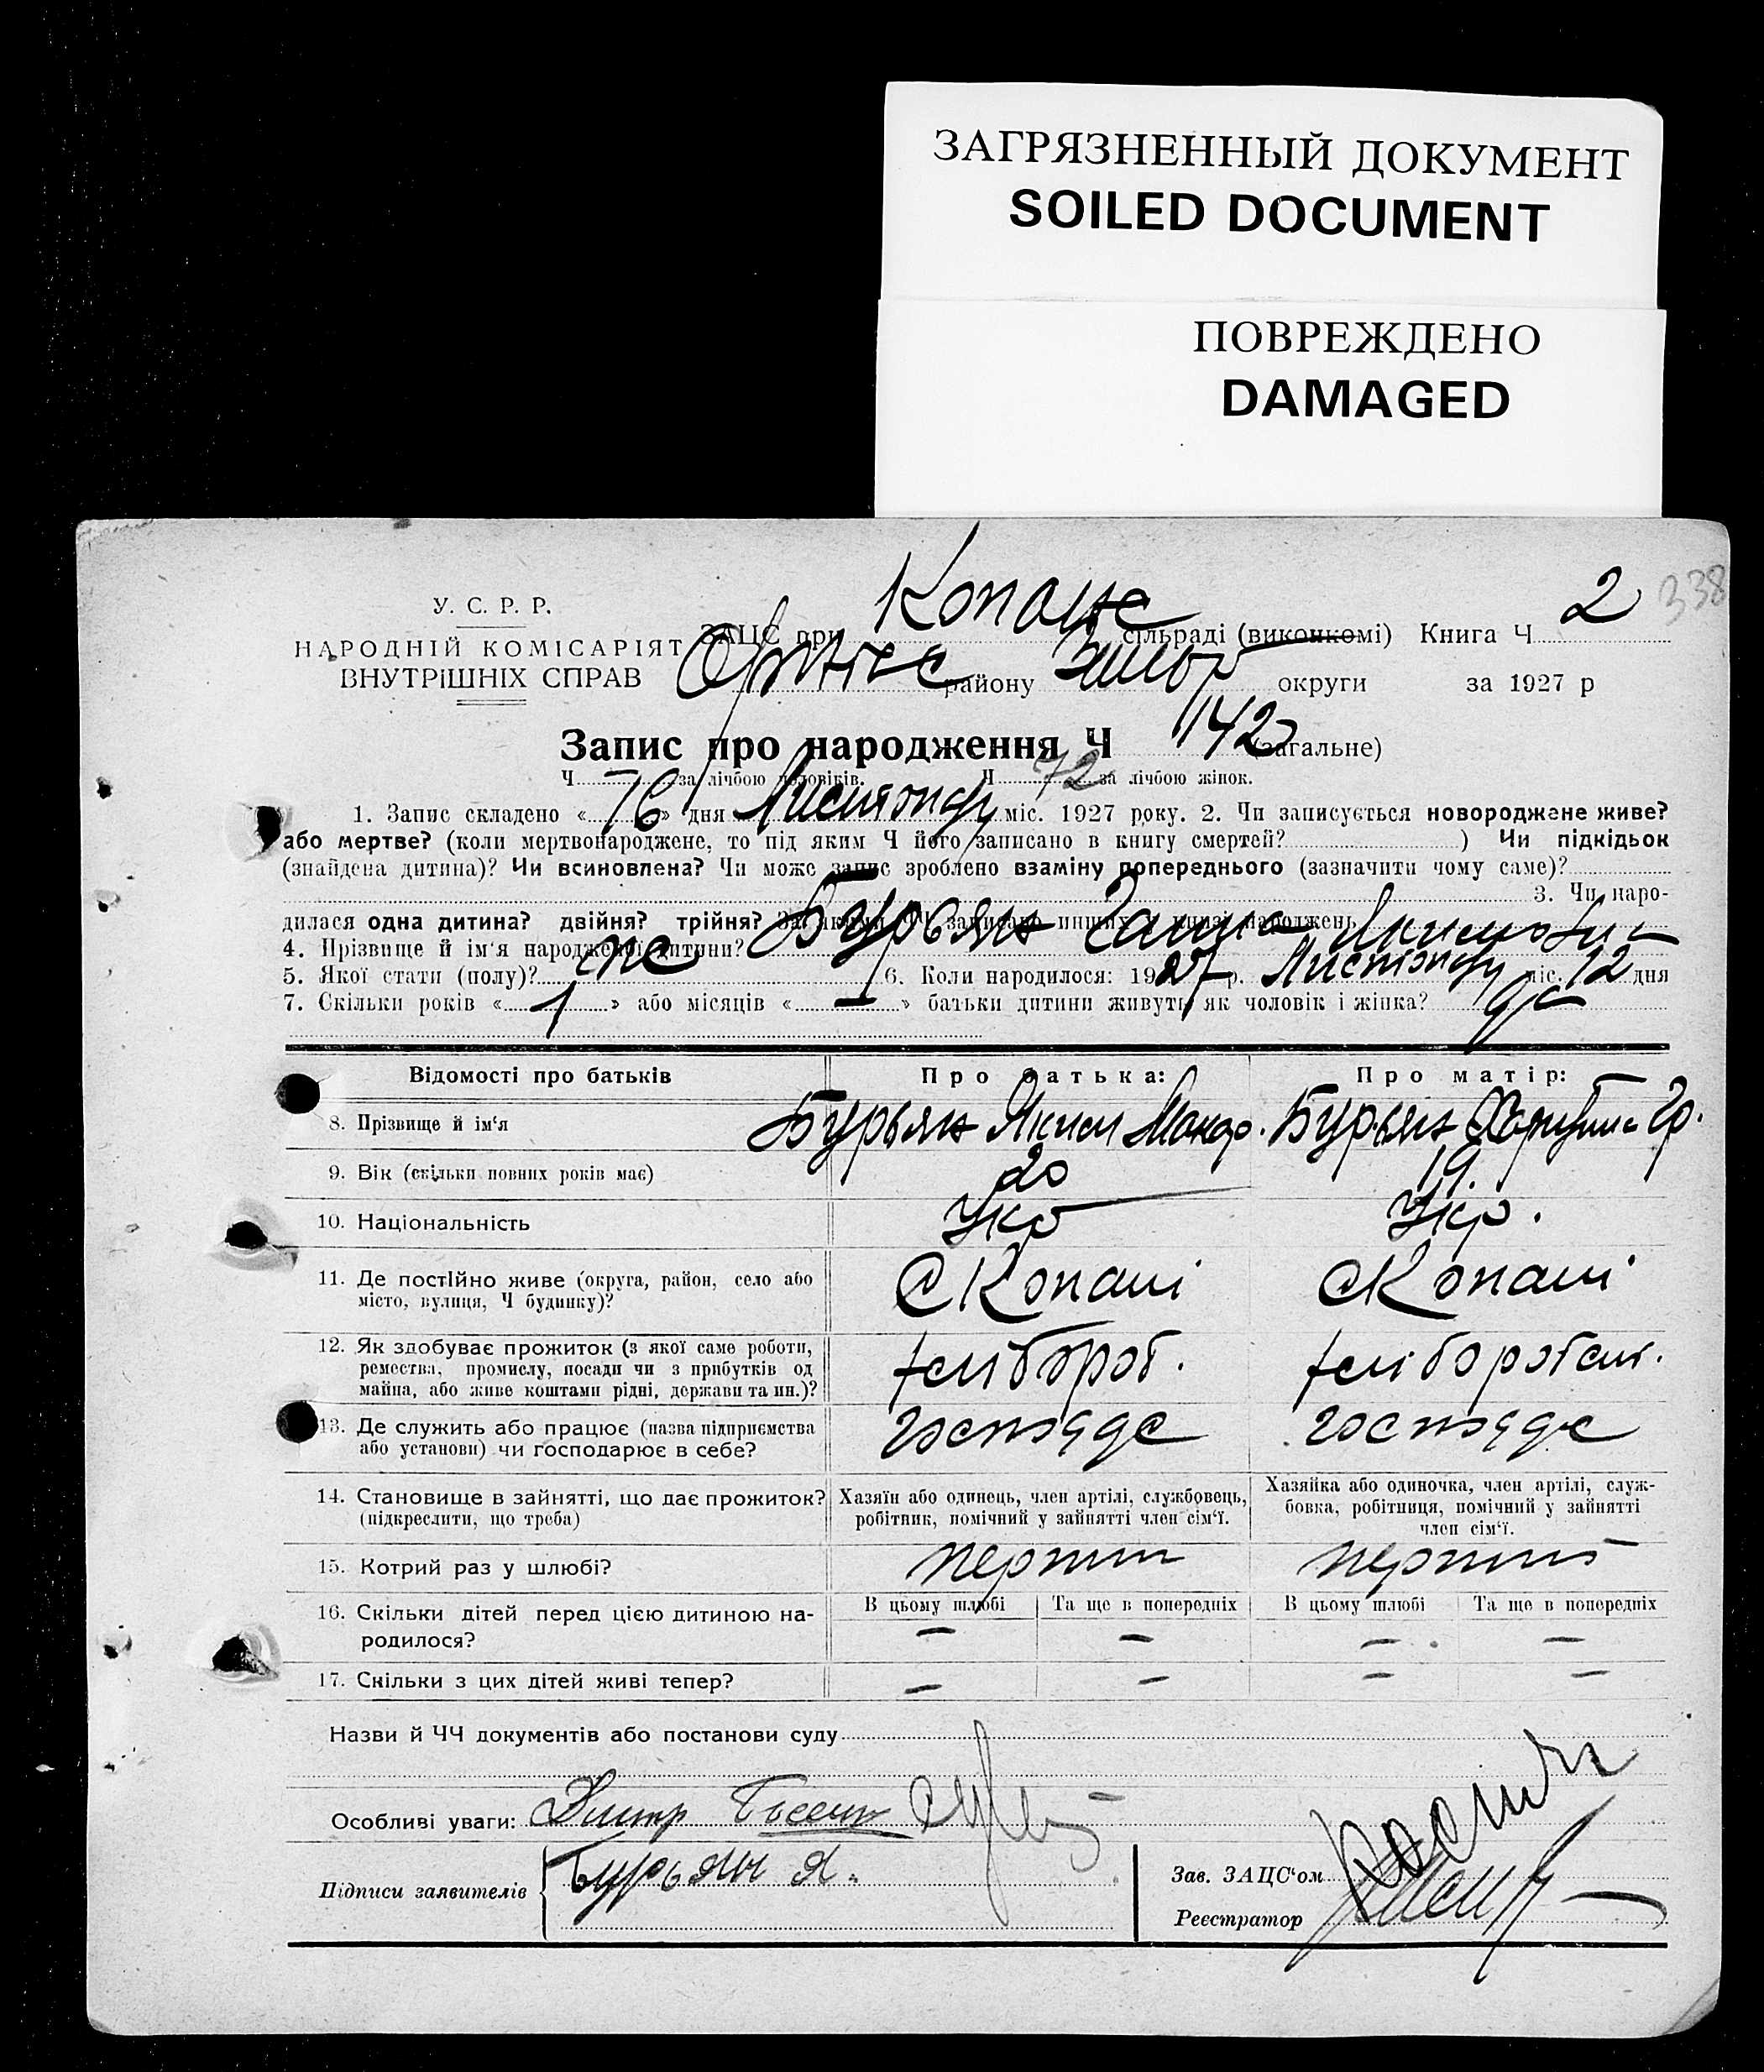 ЗАГРЯЗНЕННЫЙ ДОКУМЕНТ
SOILED DOCUMENT
ПОВРЕЖДЕНО
DAMAGED
338
У. С. Р. Р.
НАРОДНІЙ КОМІСАРІЯТ
ВНУТРІШНІХ СПРАВ
ЗАЦС при сільраді (виконкомі) Книга Ч 2
району округи за 1927 р
Запис про народження Ч 142 (загальне)
Ч за лічбою чоловіків. Ч 72 за лічбою жінок.
1. Запис складено « 16 » дня Листопаду міс. 1927 року. 2. Чи записується новороджене живе?
або мертве? (коли мертвонароджене, то під яким Ч його записано в книгу смертей? ) Чи підкідьок
(знайдена дитина)? Чи всиновлена? Чи може запис зроблено взаміну попереднього (зазначити чому саме)?
3. Чи наро-
дилася одна дитина? двійня? трійня? За якими ЧЧ записано инших у книзі народжень
4. Прізвище й ім'я народженої дитини? Бурьян Ганна Якимовна
5. Якої стати (полу)? же 6. Коли народилося: 1927 р. Листопаду міс. 12 дня
7. Скільки років « 1 » або місяців « — » батьки дитини живуть як чоловік і жінка?
Відомості про батьків Про батька: Про матір:
8. Прізвище й ім'я Бурьян Яким Макар. Бурьян Гр.
9. Вік (скільки повних років має) 20 19.
10. Національність Укр Укр.
11. Де постійно живе (округа, район, село або С Копані С Копані
місто, вулиця, Ч будинку)?
12. Як здобуває прожиток (з якої саме роботи, хлібороб. хлі
ремества, промислу, посади чи з прибутків од
майна, або живе коштами рідні, держави та ин.)?
13. Де служить або працює (назва підприємства
або установи) чи господарює в себе?
14. Становище в зайнятті, що дає прожиток? Хазяїн або одинець, член артілі, службовець, Хазяйка або одиночка, член артілі, служ-
(підкреслити, що треба) робітник, помічний у зайнятті член сім'ї. бовка, робітниця, помічний у зайнятті
член сім'ї.
15. Котрий раз у шлюбі?
16. Скільки дітей перед цією дитиною на- В цьому шлюбі Та ще в попередніх В цьому шлюбі Та ще в попередніх
родилося? — — — —
17. Скільки з цих дітей живі тепер? — — — —
Назви й ЧЧ документів або постанови суду
Особливі уваги:
Підписи заявителів Бурьян Я.
Зав. ЗАЦС'ом
Реєстратор